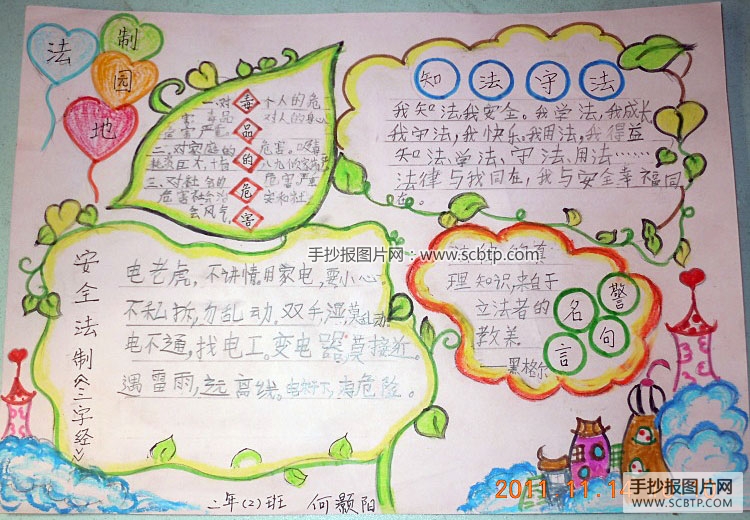 法
制
园
地
一、对 毒 个人的危
害 毒品 对人的身心
危害严重 品
二、对家庭的 的 危害。吸毒
耗资巨大,十有 八九倾家荡产
三、对社会的 危 危害,严重
危害社会治 安和社
会风气。 害
知法守法
我知法,我安全。我学法,我成长
我守法,我快乐。我用法,我得益
知法、学法、守法、用法……
法律与我同在,我与安全幸福同
在。
手抄报图片网:www.scbtp.com
安全法制《三字经》
电老虎,不讲情。用家电,要小心
不私拆,勿乱动。双手湿,莫乱动。
电不通,找电工。变电器,莫接近。
遇雷雨,远离线。
危险。
理知识,来自于
立法者的
教养。
——黑格尔
警
名
句
言
二年(2)班 何颢阳
2011.11.14
手抄报图片网
WWW.SCBTP.COM